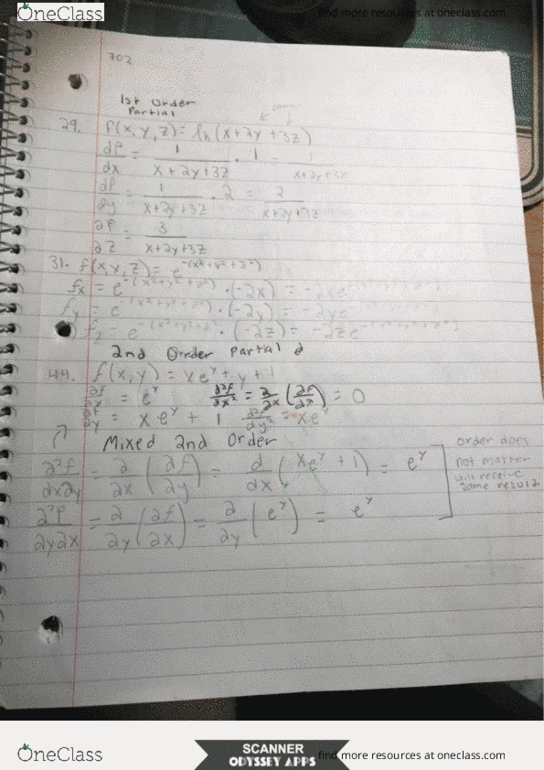 OneClass
find more resources at oneclass.com
702
1st Order
Partial
29. f(x,y,z) = ln(x+2y+3z)
df/dx = 1/(x+2y+3z) · 1 = 1/(x+2y+3z)
df/∂y = 1/(x+2y+3z) · 2 = 2/(x+2y+3z)
∂f/∂z = 3/(x+2y+3z)
31. f(x,y,z) = e^-(x²+y²+z²)
fx = e^-(x²+y²+z²) · (-2x) = -2xe^-(x²+y²+z²)
fy = e^-(x²+y²+z²) · (-2y) = -2ye^-(x²+y²+z²)
fz = e^-(x²+y²+z²) · (-2z) = -2ze^-(x²+y²+z²)
2nd Order Partial d
44. f(x,y) = xe^y + y + 1
∂f/∂x = e^y ∂²f/∂x² = ∂/∂x (∂f/∂x) = 0
∂f/y = xe^y + 1 ∂²f/dy² = xe^y
Mixed 2nd Order
∂²f/dx∂y = ∂/∂x (∂f/∂y) = d/dx (xe^y + 1) = e^y
∂²f/∂y∂x = ∂/∂y (∂f/∂x) = ∂/∂y (e^y) = e^y
order does
not matter
will receive
same result
OneClass
SCANNER
ODYSSEY APPS
find more resources at oneclass.com